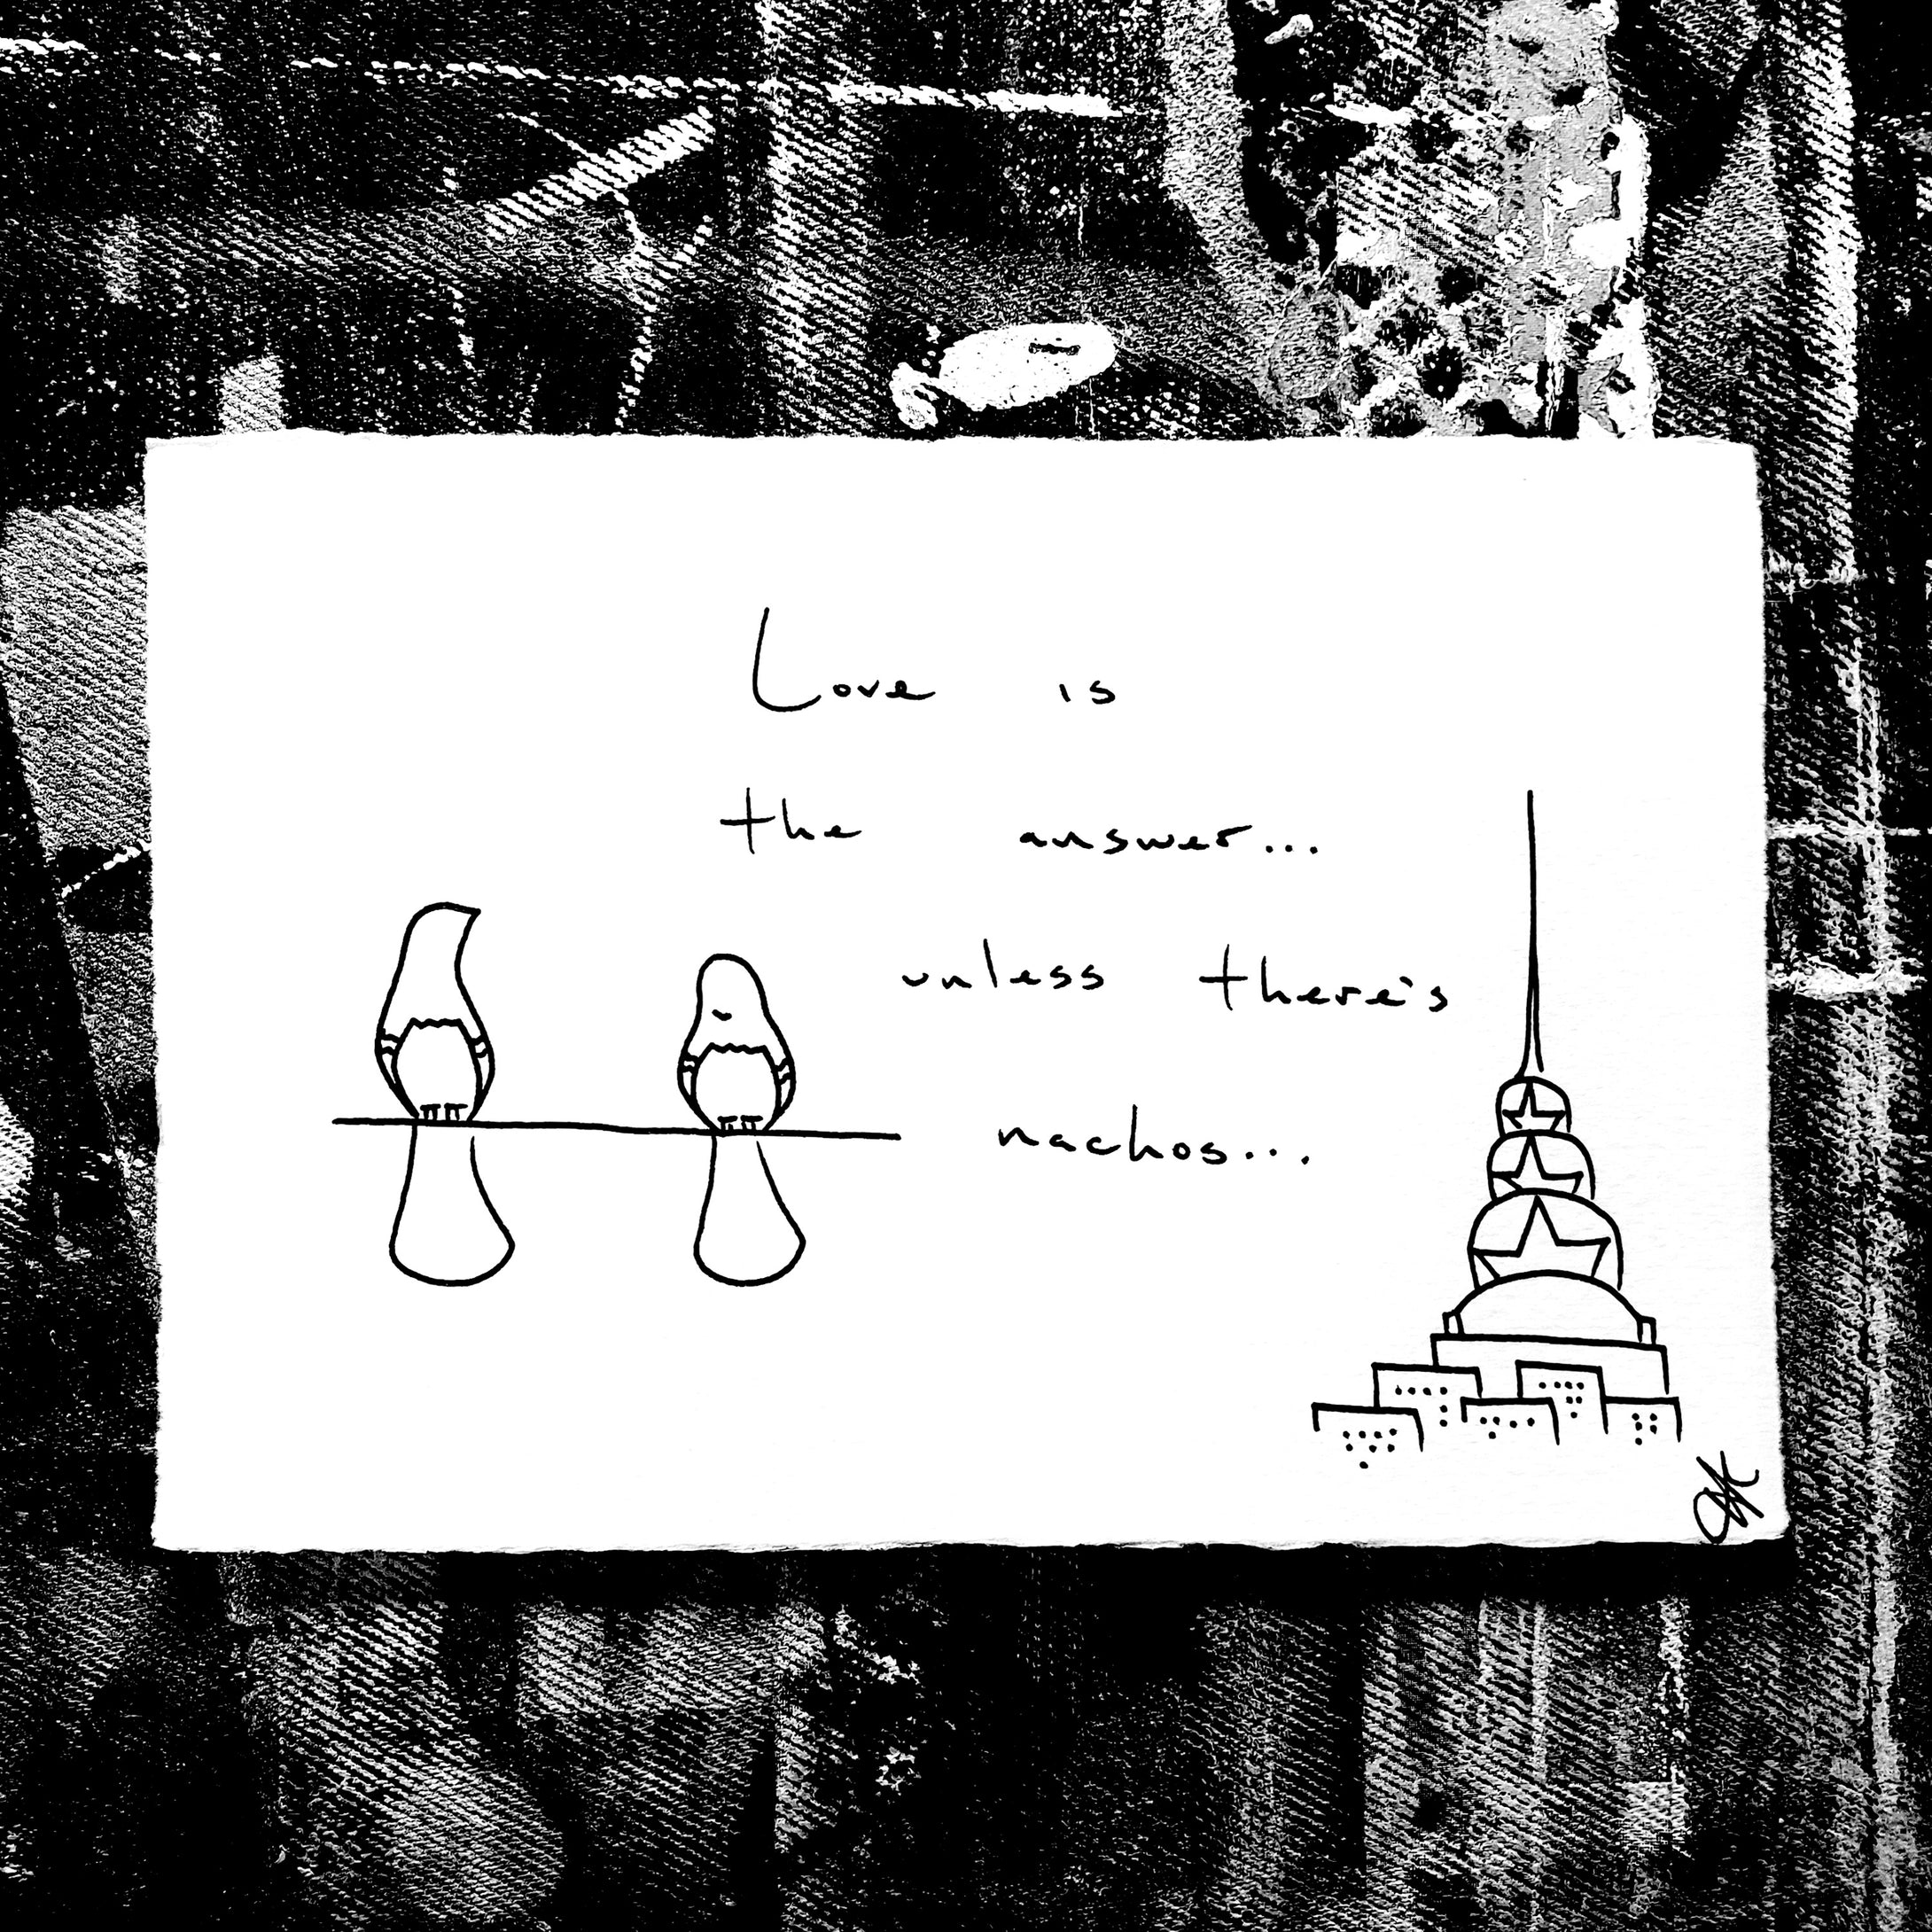 Love is
the answer...
unless there's
nachos...